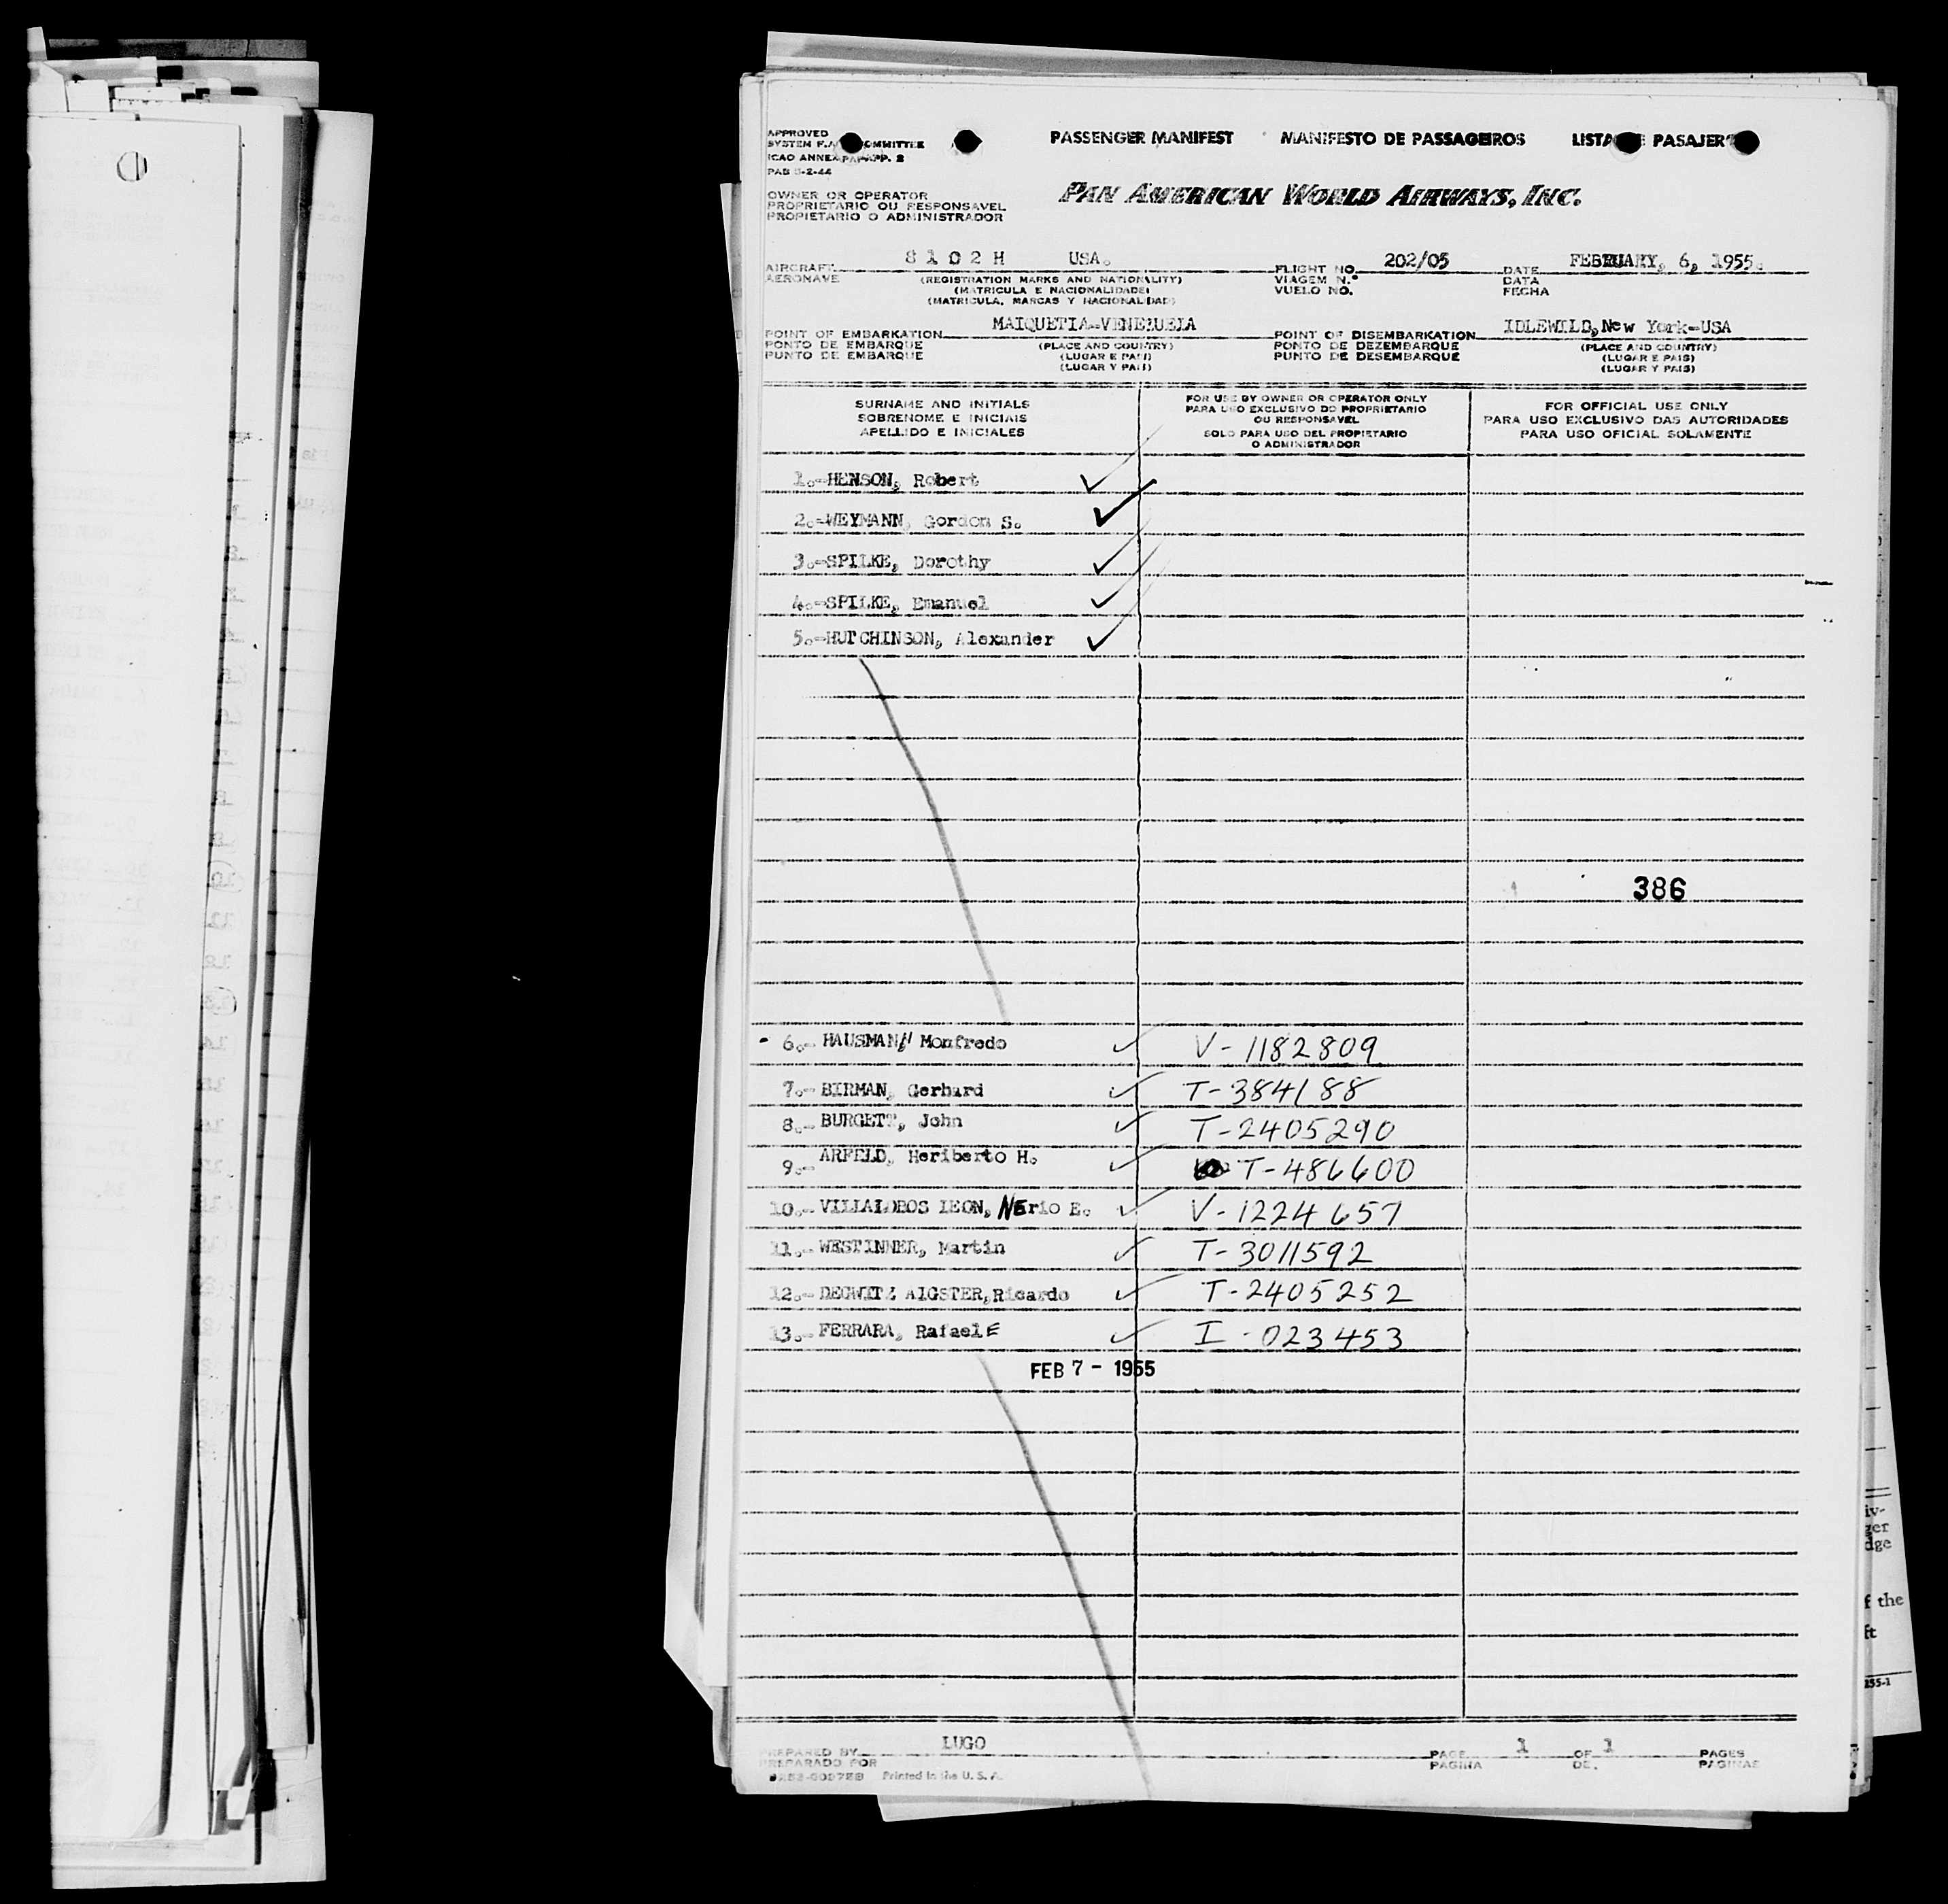 PASSENGER MANIFEST MANIFESTO DE PASSAGEIROS LISTA DE PASAJEROS
APPROVED
SYSTEM F.A. COMMITTEE
ICAO ANNEX APP. 2
OWNER OR OPERATOR
PROPRIETARIO OU RESPONSAVEL
PROPIETARIO O ADMINISTRADOR
PAN AMERICAN WORLD AIRWAYS, INC.
AIRCRAFT 8102H USA. FLIGHT NO. 202/05 DATE FEBRUARY, 6, 1955.
AERONAVE (REGISTRATION MARKS AND NATIONALITY) VIAGEM N.° DATA
(MATRICULA E NACIONALIDADE) VUELO NO. FECHA
(MATRICULA, MARCAS Y NACIONALIDAD)
POINT OF EMBARKATION MAIQUETIA-VENEZUELA POINT OF DISEMBARKATION IDLEWILD, New York-USA
PONTO DE EMBARQUE (PLACE AND COUNTRY) PONTO DE DEZEMBARQUE (PLACE AND COUNTRY)
PUNTO DE EMBARQUE (LUGAR E PAIS) PUNTO DE DESEMBARQUE (LUGAR E PAIS)
(LUGAR Y PAIS) (LUGAR Y PAIS)
SURNAME AND INITIALS
SOBRENOME E INICIAIS
APELLIDO E INICIALES
FOR USE BY OWNER OR OPERATOR ONLY
PARA USO EXCLUSIVO DO PROPRIETARIO
OU RESPONSAVEL
SOLO PARA USO DEL PROPIETARIO
O ADMINISTRADOR
FOR OFFICIAL USE ONLY
PARA USO EXCLUSIVO DAS AUTORIDADES
PARA USO OFICIAL SOLAMENTE
1.-HENSON, Robert
2.-WEYMANN, Gordon S.
3.-SPILKE, Dorothy
4.-SPILKE, Emanuel
5.-HUTCHINSON, Alexander
386
6.- HAUSMANN Monfredo V-1182809
7.- BIRMAN, Gerhard T-384188
8.- BURGETT, John T-2405290
9.- ARFELD, Heriberto H. T-486600
10.- VILLALOBOS LEON, NErio E. V-1224657
11.- WESTINNER, Martin T-3011592
12.- DEGWITZ AIGSTER, Ricardo T-2405252
13.- FERRARA, RafaelE I-023453
FEB 7 - 1955
PREPARED BY LUGO PAGE 1 OF 1 PAGES
PREPARADO POR PAGINA DE. PAGINAS
Printed in the U. S. A.